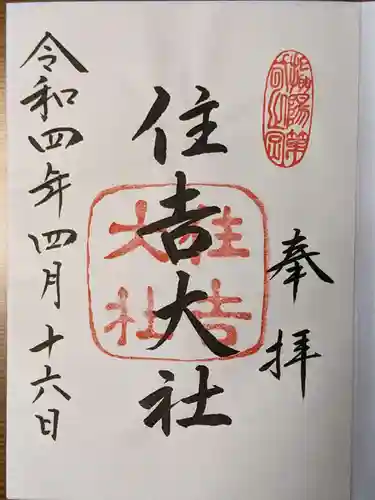 奉拝
住吉大社
住吉
大社
令和四年四月十六日